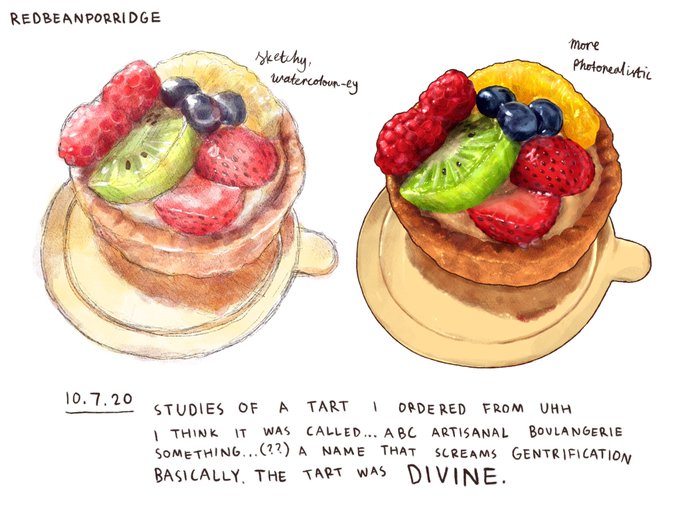 REDBEANPORRIDGE
sketchy,
watercolour-ey
more
photorealistic
10.7.20
STUDIES OF A TART I ORDERED FROM UHH
I THINK IT WAS CALLED... ABC ARTISANAL BOULANGERIE
SOMETHING...(??) A NAME THAT SCREAMS GENTRIFICATION
BASICALLY. THE TART WAS DIVINE.